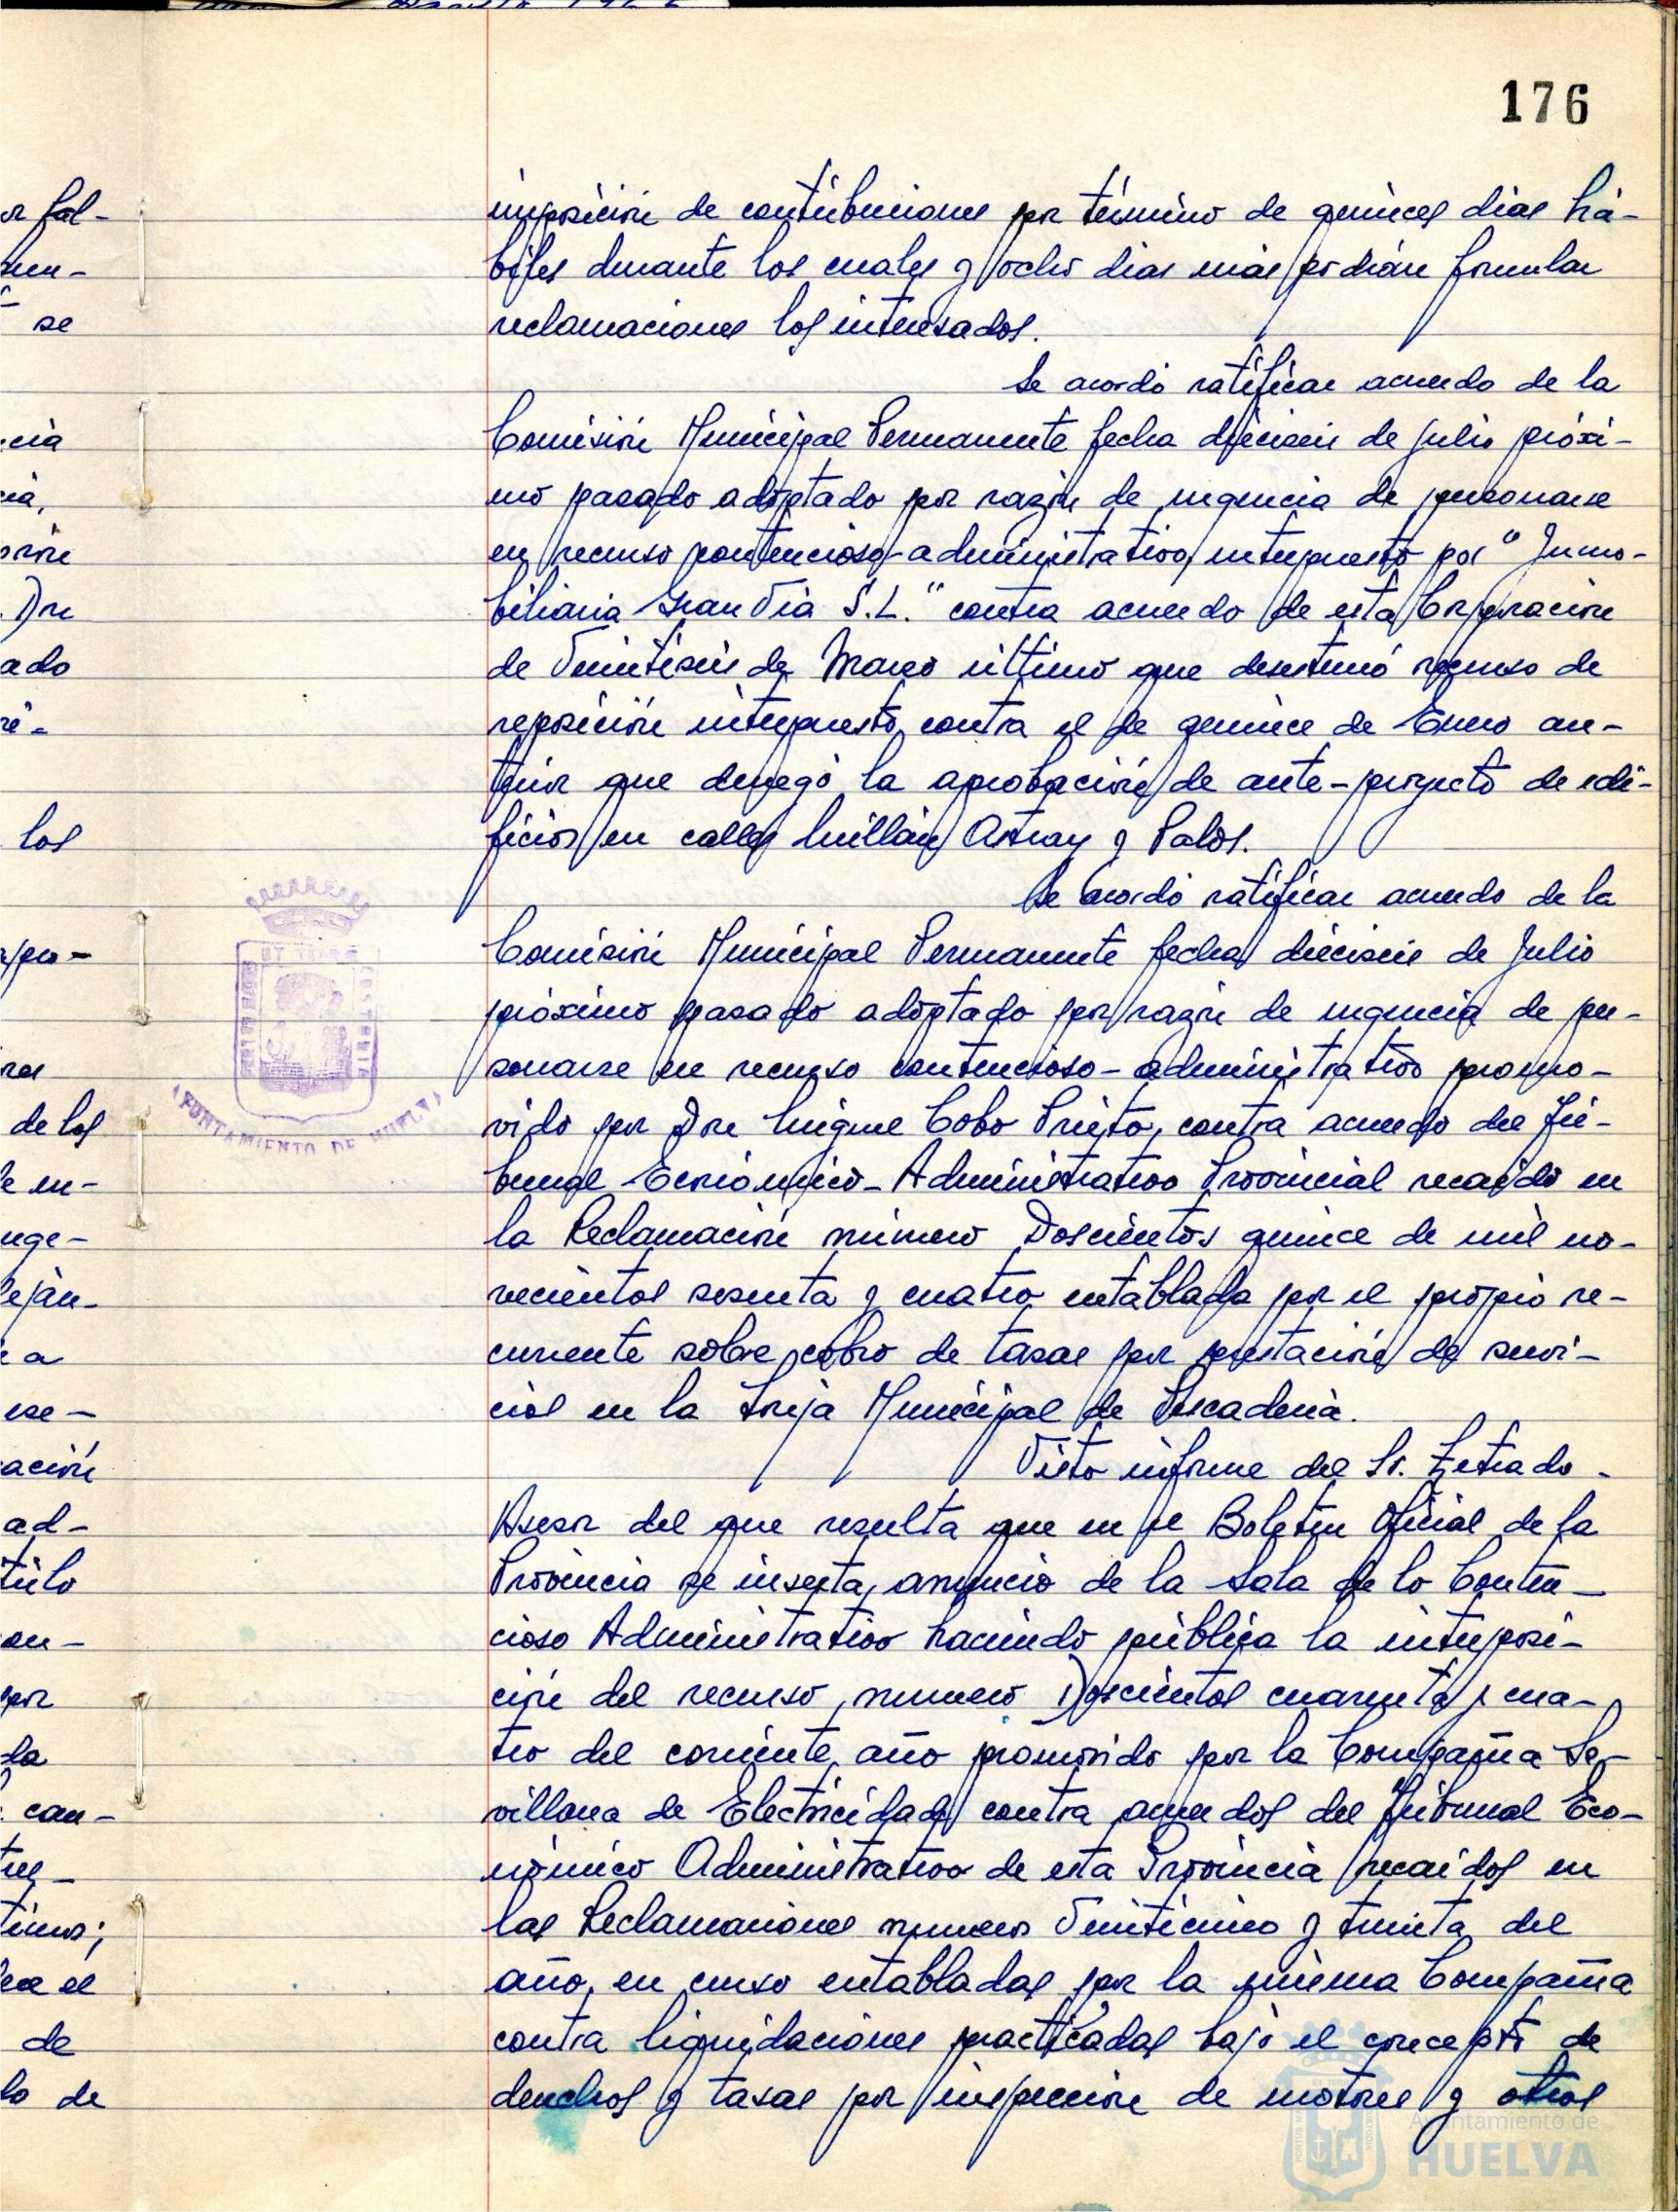 176
imposición de contribuciones por término de quinces dias há-
biles durante los cuales y ocho dias más podrán formular
reclamaciones los interesados.
Se acordó ratificar acuerdo de la
Comisión Municipal Permanente fecha dieciseis de Julio próxi-
mo pasado adoptado por razón de urgencia de personarse
en recurso contencioso-administrativo, interpuesto por "Inmo-
biliaria Gran Via S.L." contra acuerdo de esta Corporación
de Veintiseis de Marzo último que desestimó recurso de
reposición interpuesto contra el de quince de Enero an-
terior que denegó la aprobación de ante-proyecto de edi-
ficios en calles Millán Astray y Palos.
Se acordó ratificar acuerdo de la
Comisión Municipal Permanente fecha dieciseis de Julio
próximo pasado adoptado por razón de urgencia de per-
sonarse en recurso contencioso-administrativo promo-
vido por Don Miguel Cobo Prieto, contra acuerdo del Tri-
bunal Económico-Administrativo Provincial recaido en
la Reclamación número Doscientos quince de mil no-
vecientos sesenta y cuatro entablada por el propio re-
currente sobre cobro de tasas por prestación de servi-
cios en la Lonja Municipal de Pescaderia.
Visto informe del Sr. Letrado-
Asesor del que resulta que en el Boletin Oficial de la
Provincia se inserta, anuncio de la Sala de lo Conten-
cioso Administrativo haciendo pública la interposi-
ción del recurso, número Doscientos cuarenta y cua-
tro del corriente año promovido por la Compañia Se-
villana de Electricidad contra acuerdos del Tribunal Eco-
nómico Administrativo de esta Provincia recaidos en
las Reclamaciones numeros Veinticinco y treinta del
año en curso entabladas por la misma Compañia
contra liquidaciones practicadas bajo el concepto de
derechos y tasas por inspección de motores y otros
AYUNTAMIENTO DE HUELVA
Ayuntamiento de
HUELVA